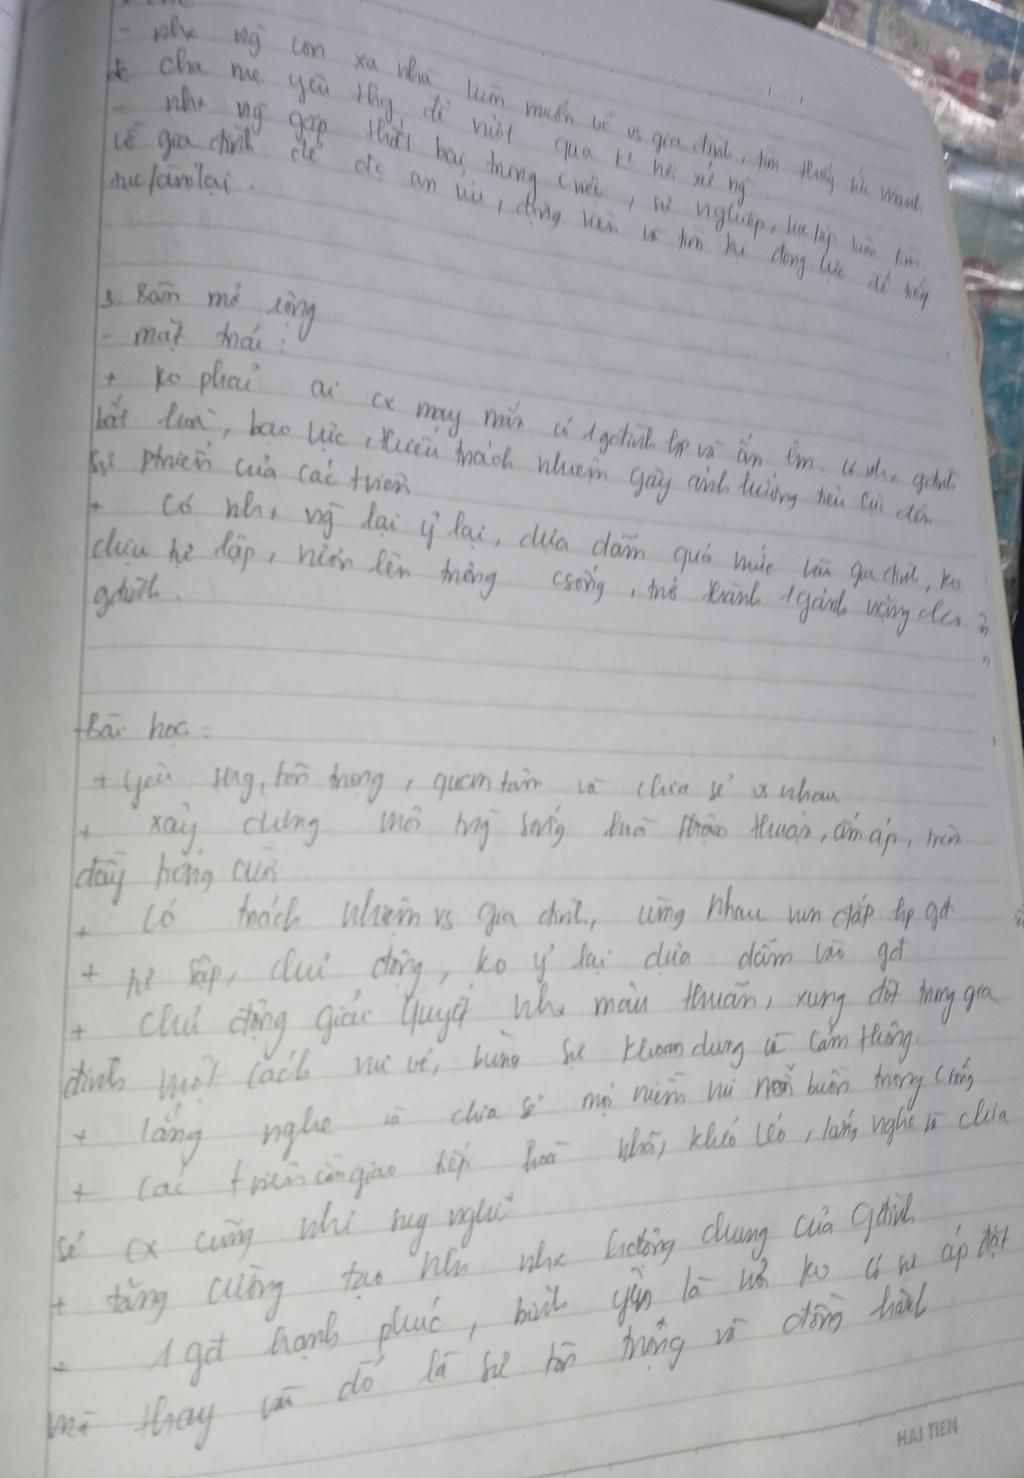 - nhx ng con xa nhà luôn muốn về vs gia đình, tìm thấy sức mạnh
từ cha mẹ yêu thg để vượt qua
- nhx ng gặp thất bại trong csốt, sự nghiệp, học tập luôn tìm
về gia đình để đc an ủi, động viên và tìm lại động lực để tiếp
tục làm lại.
3. Bàn mở rộng
- mặt trái:
+ ko phải ai cx may mắn có 1 gđình tợp và ấn êm. có nhx gđình
bất hoà, bạo lực, thiếu trách nhiệm gây ảnh hưởng tiêu cực đến
sự phiển của các tviên
+ Có nhx ng lại ỷ lại, dựa dẫm quá mức vào gia đình, ko
chịu tự lập, vươn lên trong csống, trở thành 1 gánh nặng cho
gđình.
+ Bài học:
+ yêu thg, tôn trọng, quan tâm và chia sẻ vs nhau
+ xây dựng môi trg sống hoà thuận, ấm áp, tràn
đầy tiếng cười
+ Có trách nhiệm vs gia đình, cùng nhau vun đắp tợp gđ
+ tự lập, chủ động, ko ỷ lại dựa dẫm vào gđ
+ chủ động giải quyết nhx mâu thuẫn, xung đột trong gia
đình một cách vui vẻ, bằng sự khoan dung và cảm thông.
+ lắng nghe và chia sẻ mọi niềm vui nỗi buồn trong csống
+ các tviên cần giao tiếp hoà nhã, khéo léo, lắng nghe và chia
sẻ cx cũng như suy nghĩ
+ tăng cường tạo nên nhx hđộng chung của gđình
+ 1 gđ hạnh phúc, bình yên là ko có sự áp đặt
mà thay vào đó là sự tôn trọng và đồng hành
HAI TIEN